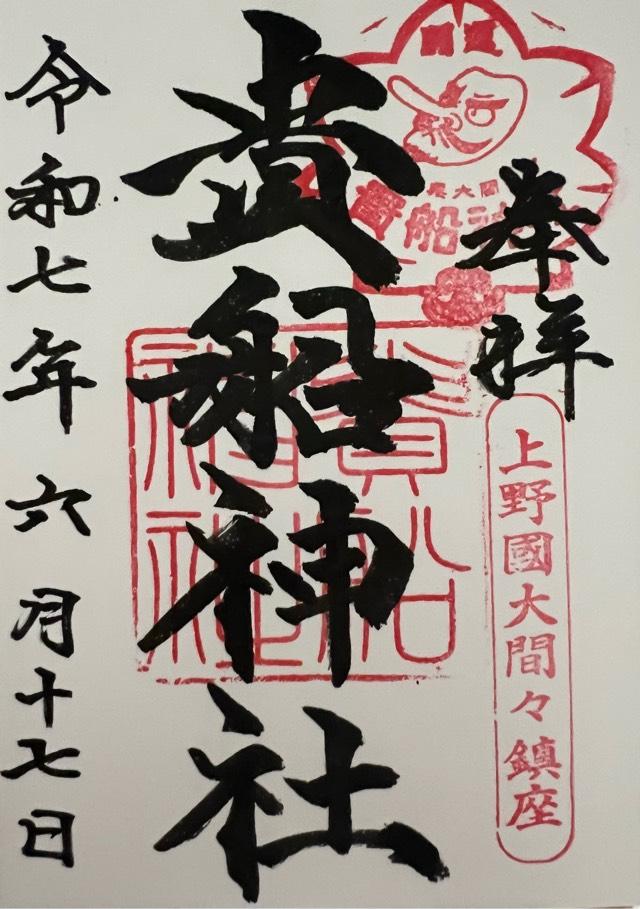 奉拝
上野國大間々鎮座
開運
大間
貴船神社
貴船神社
貴船神社
令和七年六月十七日